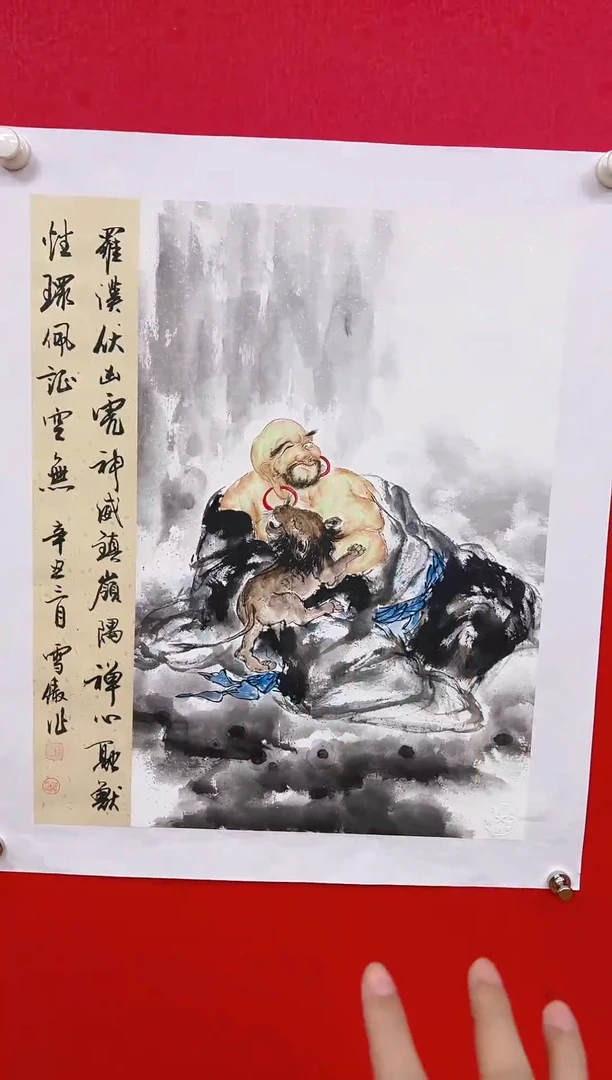 羅漢伏幽虎神威鎮嶺隅禅心馭獸
性環佩証空無 辛丑三月 雪傲作